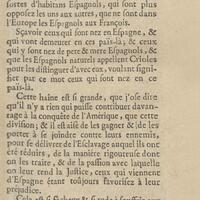 sortes d'habitans Espagnols, qui sont plus
opposez les uns aux autres, que ne sont dans
l'Europe les Espagnols aux François.
Sçavoir ceux qui sont nez en Espagne, &
qui vont demeurer en ces païs-là ; & ceux
qui y sont nez de pere & mere Espagnols, &
que les Espagnols naturels appellent Crioles
pour les distinguer d'avec eux, voulant signi-
fier par ce mot ceux qui sont nez en ce
païs-là.
Cette haine est si grande, que j'ose dire
qu'il n'y a rien qui puisse contribuer davan-
rage à la conquête de l'Amérique, que cette
division ; & il est aisé de les gagner & de les
porter à se joindre contre leurs ennemis,
pour se délivrer de l'Esclavage auquel ils ont
été réduits, de la manière rigoureuse dont
on les traite, & de la passion avec laquelle
on leur rend la Justice, ceux qui viennent
d'Espagne étant toujours favorisez à leur
préjudice.